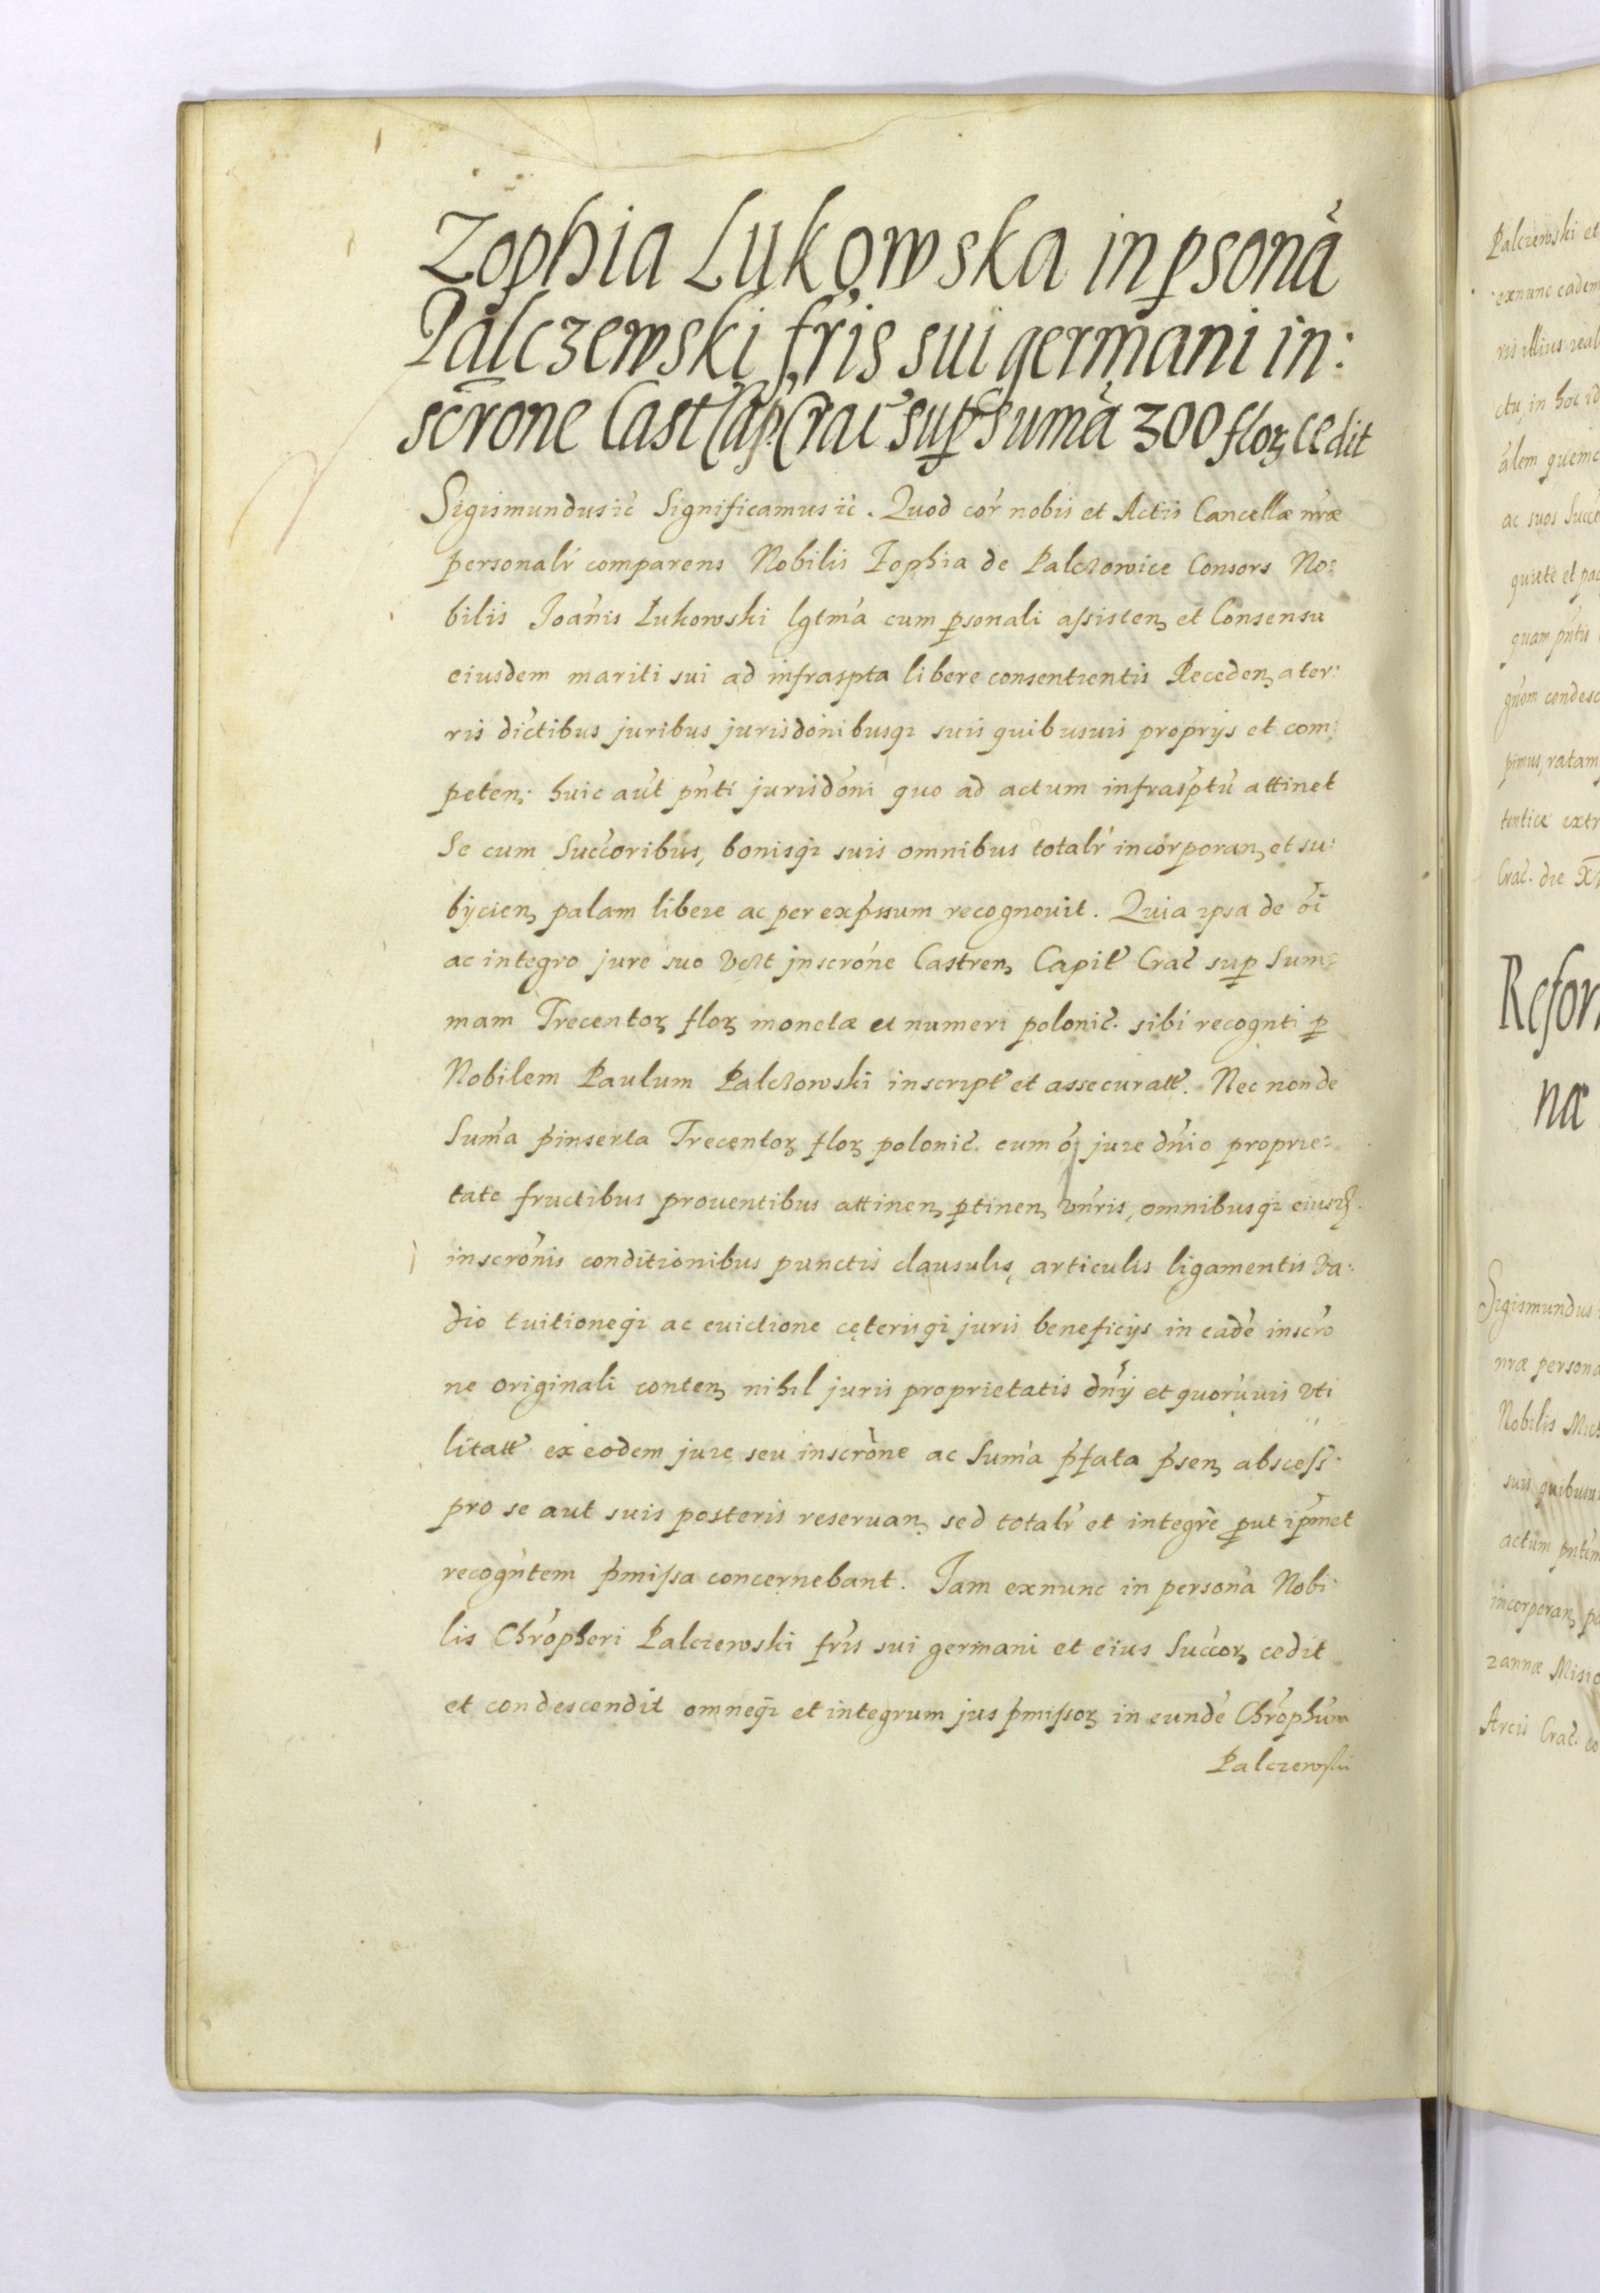 Zophia Lukowska in psonā
Palczewski fris sui germani in:
scrone Cast Cap. Crac sup sumā 300 flor cedit
Sigismundus ic Significamus ic. Quod cor nobis et Actis Cancellæ nræ
personalr comparens Nobilis Zophia de Palczowice Consors No:
bilis Joānis Lukowski lgtma cum psonali assisten et Consensu
eiusdem mariti sui ad infraspta libere consentientis Receden a ter:
ris dictibus juribus jurisdonibusqz suis quibusuis proprijs et com:
peten. huic aut pnti jurisdoni quo ad actum infrasptū attinet
Se cum Succoribus, bonisqz suis omnibus totalr incorporan et su:
bijcien palam libere ac per expssum recognouit. Quia ipsa de oi
ac integro jure suo vért jnscrone Castren Capit Crac sup Sum:
mam Trecentor flor monetæ et numeri polonic. sibi recognti p
Nobilem Paulum Palczowski inscript et assecuratt. Nec non de
Suma pinserta Trecentor flor polonic. cum oi jure dnio proprie:
tate fructibus prouentibus attinen ptinen vnris, omnibusqz eiusd.
inscronis conditionibus punctis clausulis, articulis ligamentis va:
dio tuitioneqz ac euictione cęterisqz juris beneficijs in eadē inscro
ne originali conten nihil juris proprietatis dnij et quorūuis vti
litatt ex eodem jure seu inscrone ac Suma pfata psen abscess.
pro se aut suis posteris reseruan sed totalr et integrè put ipmet
recogntem pmissa concernebant. Jam exnunc in personā Nobi
lis Chropheri Palczewski fris sui germani et eius Succor cedit
et condescendit omneqz et integrum jus pmissor in eundē Chrophūm
Palczewski
Palczewski et
exnunc eadem
ris illius
ctu in hoc
alem quemc
ac suos Succe
quietè et pac
quam
condesc
pimus, ratam
extr
Crac. die
Refor
næ
Sigismundus
nræ persona
Nobilis Mich
suis quibusu
actum pntem
incorporan pa
zannæ
Arcis Crac.